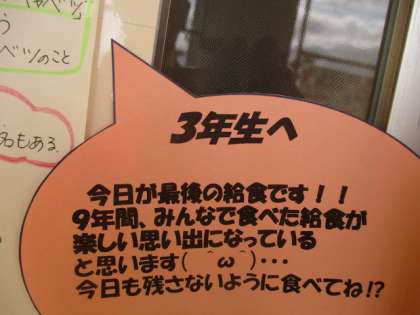 ャベツ
う
ベツのこと
名もある
3年生へ
今日が最後の給食です!!
9年間、みんなで食べた給食が
楽しい思い出になっている
と思います(＾ω＾)…
今日も残さないように食べてね!?